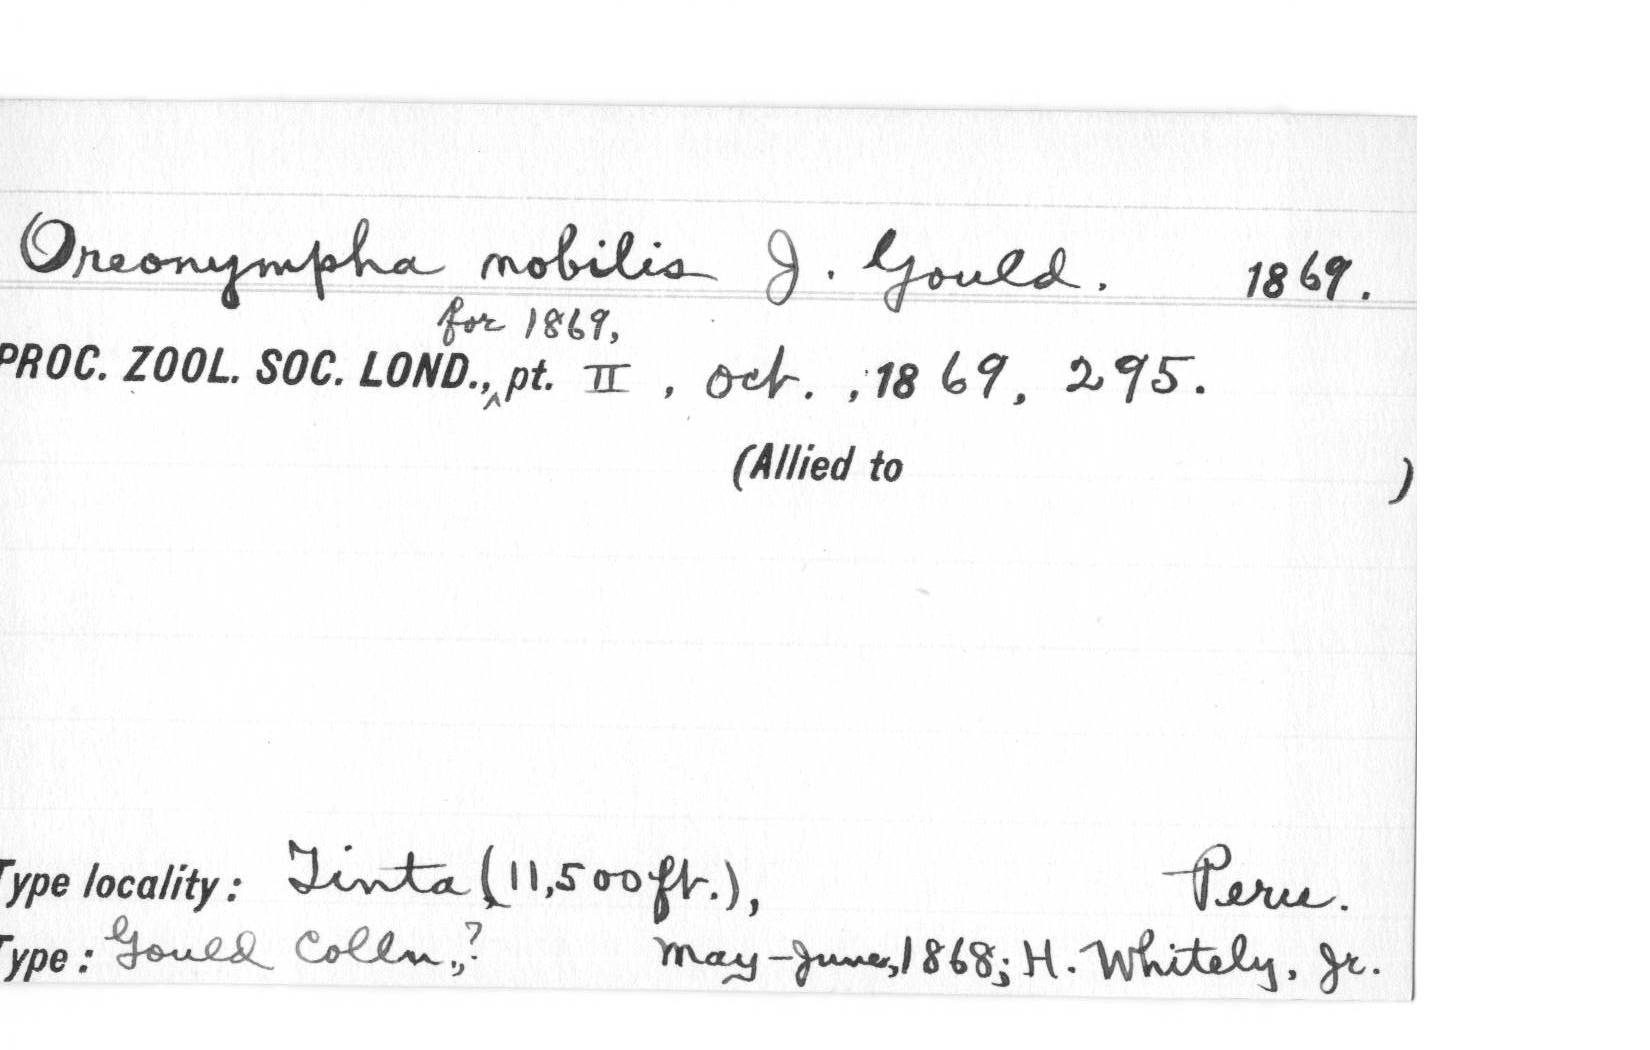 Oreonympha nobilis J. Gould. 1869.
for 1869,
PROC. ZOOL. SOC. LOND.,^ pt. II, Oct., 1869, 295.
(Allied to )
Type locality: Tinta (11,500 ft.), Peru.
Type: Gould Colln.,? May-June, 1868; H. Whitely, Jr.